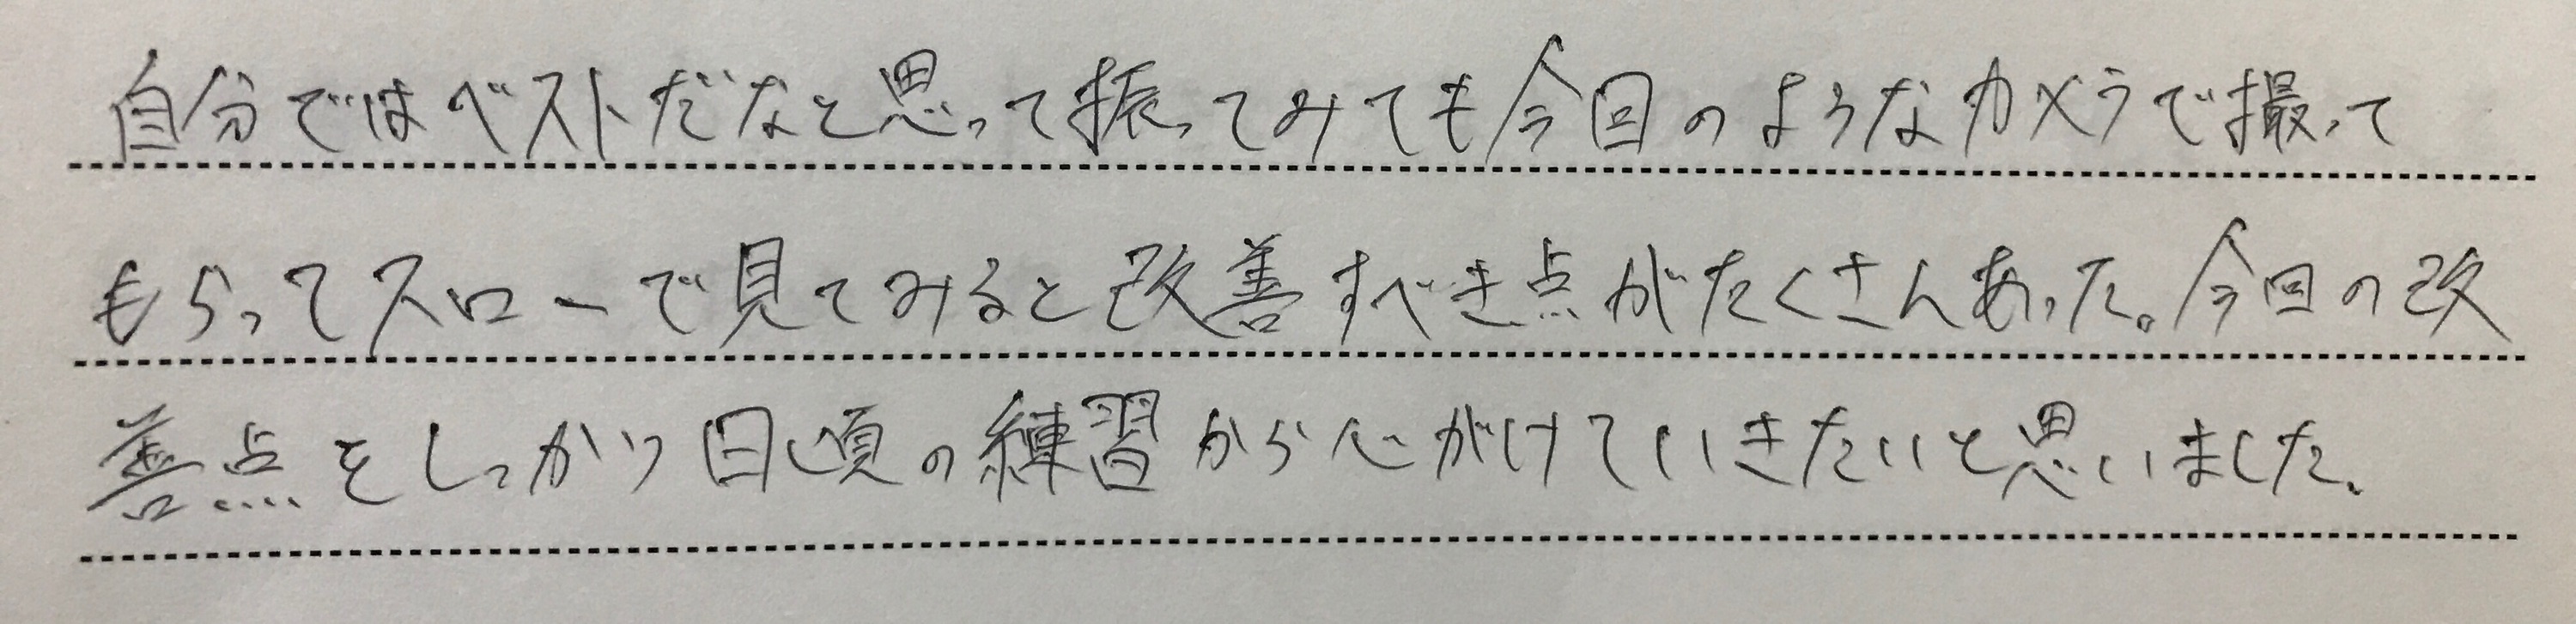 自分ではベストだなと思って振ってみても今回のようなカメラで撮って
もらってスローで見てみると改善すべき点がたくさんあった。今回の改
善点をしっかり日頃の練習から心がけていきたいと思いました。